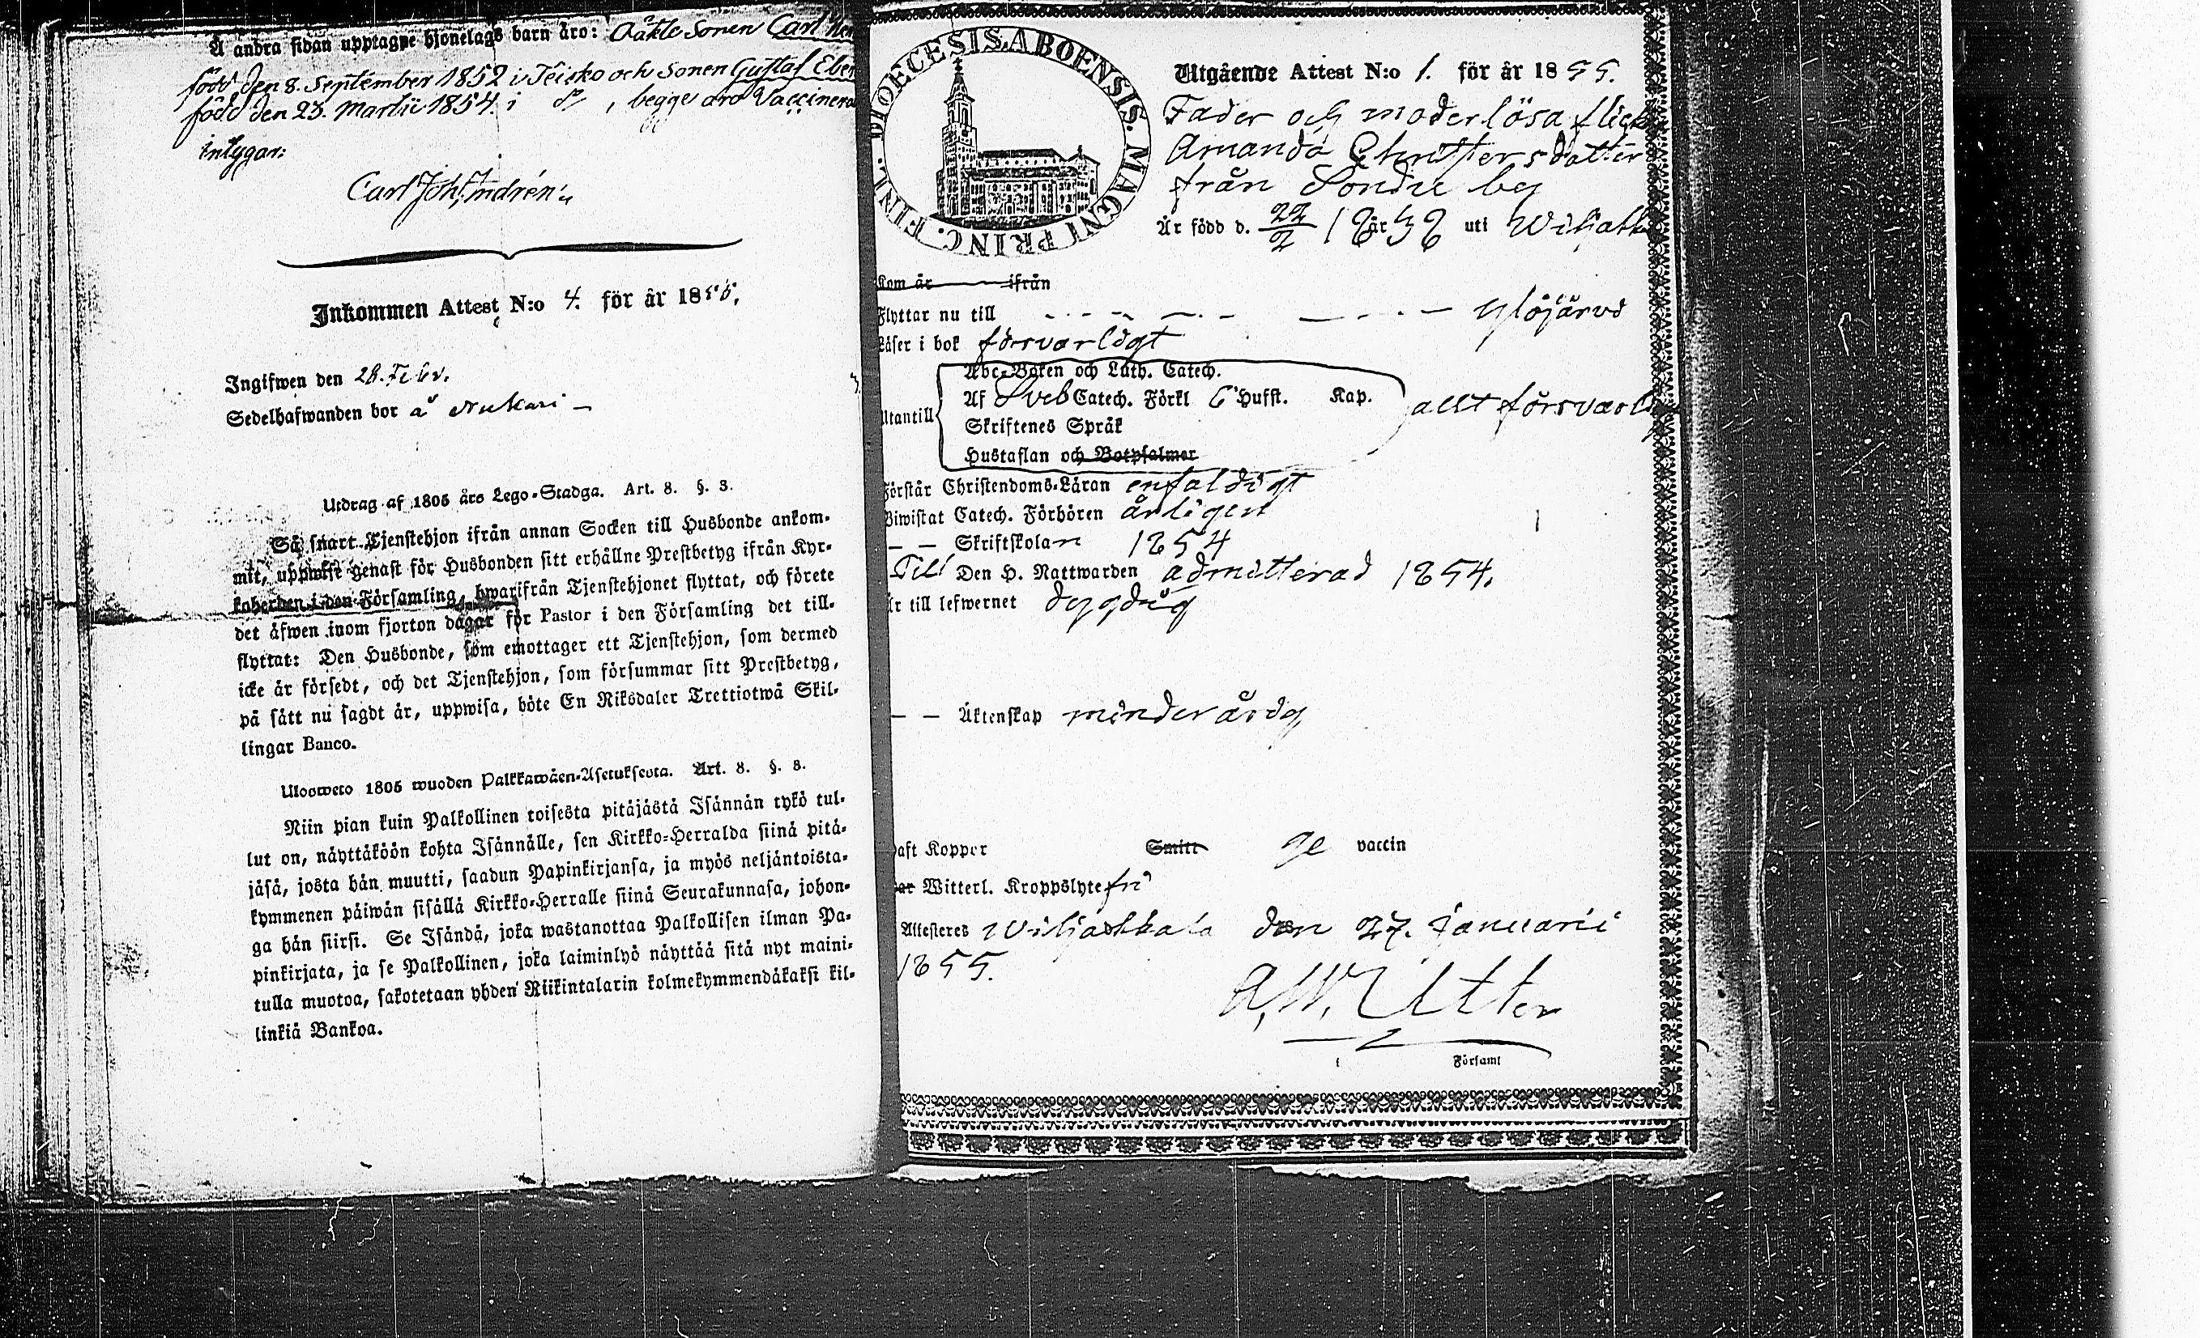 Å andra sidan upptagne hjonelags barn äro: Äkte Sonen Carl
född den 8. September 1852 i Teisko och Sonen Gustaf
född den 23. Martii 1854. i do, begge äro Vaccinera
intygar:
Carl Joh. Indrén
Inkommen Attest N:o 4. för år 1855.
Ingifwen den 28. Febr.
Sedelhafwanden bor å
Utdrag af 1805 års Lego-Stadga. Art. 8. §. 3.
Så snart Tjenstehjon ifrån annan Socken till Husbonde ankom-
mit, uppwise genast för Husbonden sitt erhållne Prestbetyg ifrån Kyr-
koherden i den Församling, hwarifrån Tjenstehjonet flyttat, och förete
det äfwen inom fjorton dagar för Pastor i den Församling det till-
flyttat: Den Husbonde, som emottager ett Tjenstehjon, som dermed
icke är försedt, och det Tjenstehjon, som försummar sitt Prestbetyg,
på sätt nu sagdt är, uppwisa, böte En Riksdaler Trettiotwå Skil-
lingar Banco.
Ulosweto 1805 wuoden Palkkawäen-Asetuksesta. Art. 8. §. 3.
Niin pian kuin Palkollinen toisesta pitäjästä Isännän tykö tul-
lut on, näyttäköön kohta Isännälle, sen Kirkko-Herralda siinä pitä-
jäsä, josta hän muutti, saadun Papinkirjansa, ja myös neljäntoista-
kymmenen päiwän sisällä Kirkko-Herralle siinä Seurakunnasa, johon-
ga hän siirsi. Se Isändä, joka wastanottaa Palkollisen ilman Pa-
pinkirjata, ja se Palkollinen, joka laiminlyö näyttää sitä nyt maini-
tulla muotoa, sakotetaan yhden Riikintalarin kolmekymmendäkaksi kil-
linkiä Bankoa.
DIOECESIS ABOENSIS. MAGNI PRINC. FINL.
Utgående Attest N:o 1. för år 1855.
Fader och moderlösa flick
Amanda Christersdotter
från Sondu by
Är född d. 22/2 1838 uti Wiljakk
Kom år ifrån
Flyttar nu till Ylöjärvi
Läser i bok försvarligt
Abc-Boken och Luth. Catech.
Utantill Af Sveb Catech. Förkl 6 Hufst. Kap. allt försvarl
Skriftenes Språk
Hustaflan och Botpsalmer
Förstår Christendoms-Läran enfaldigt
Biwistat Catech. Förhören årligen
— — Skriftskolan 1854
Till Den H. Nattwarden admitterad 1854.
Är till lefwernet dygdig
— — Äktenskap minderårig
Haft Koppor Smitt ge vaccin
har Witterl. Kroppslyte fri
Attesteres Wiljakkala den 27. Januarii
1855.
A. W. Utter
Församl